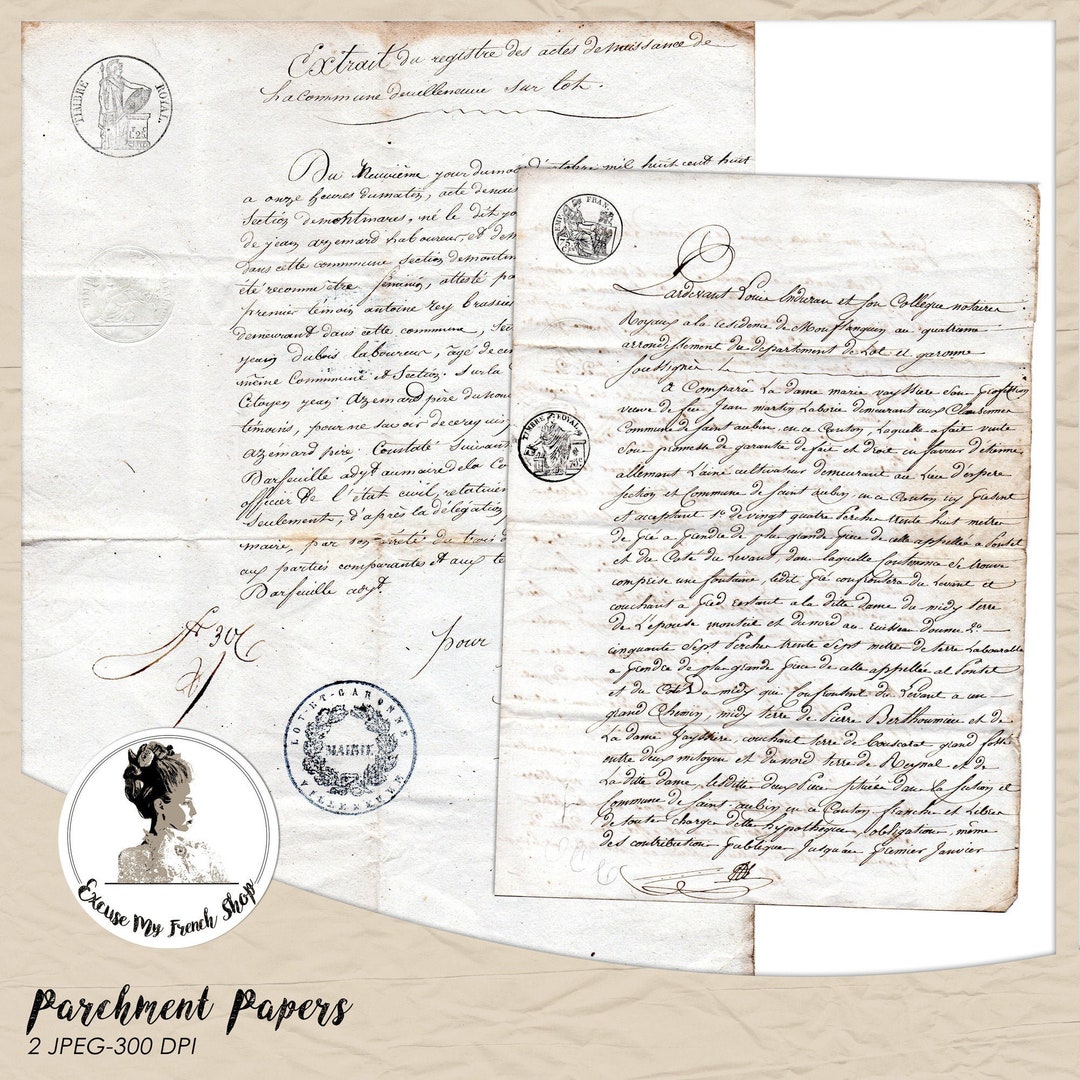 Extrait du registre des actes de naissance de
la commune de villeneuve sur lot.
TIMBRE ROYAL.
Du Neuvième jour du mois d'octobre mil huit cent huit
a onze heures du matin, acte de nais
Section de montmares, né le dit jo
de jean azemard laboureur, et de
dans cette commune section de
été reconnu être féminin, attesté pa
premier témoin antoine rey brassie
demeurant dans cette commune, Sec
jean dubois laboureur, âgé de cin
même Commune et Section. Sur la
Citoyen jean azemard père du
témoins, pour ne savoir de ce requis
azemard père. Constaté Suivant
Barfeuille adjt au maire de la Co
officier de l'état civil,
Seulement, d'après la délégation
maire, par son arrêté du trois d
aux parties comparantes et aux té
Barfeuille adjt.
pour
LOT-ET-GARONNE
MAIRIE
VILLENEUVE
FRAN.
TIMBRE ROYAL
Pardevant Louis Induran et son Collègue notaires
Royaux a la residence de Monflanquin au quatrieme
arrondissement du departement de Lot et garonne
soussignés
A Comparû La dame marie vayssiere
veuve de feu Jean martin Laborie demeurant aux
Commune de saint aubin, en ce Canton, Laquelle a fait vente
sous promesse de garantie de fait et droit en faveur d'étienne
allemant L'ainé cultivateur demeurant au Lieu
section et Commune de saint aubin en ce Canton icy present
et acceptant 1° de vingt quatre perches trente huit metres
de plus grande piece de celle appellée a
et du Coté du Levant, dans laquelle contenance se trouve
comprise une fontaine, ledit
couchant a la ditte dame du midy terre
de et du nord au
cinquante sept perches trente sept metres de terre Labourable
a prendre de plus grande piece de celle appellée al
et du Coté du midy qui confrontent du Levant a un
grand Chemin, midy terre de Pierre Berthoumieu et de
La dame Vayssiere, couchant terre de grand fossé
entre deux mitoyen et du nord terre de Reynal et de
La ditte dame, lesdittes deux pieces situées dans la section et
Commune de saint-aubin en ce Canton franche et Libre
de toute charge dette hypotheque, obligation, même
des contributions publiques jusqu'au premier janvier
Excuse My French Shop
Parchment Papers
2 JPEG-300 DPI